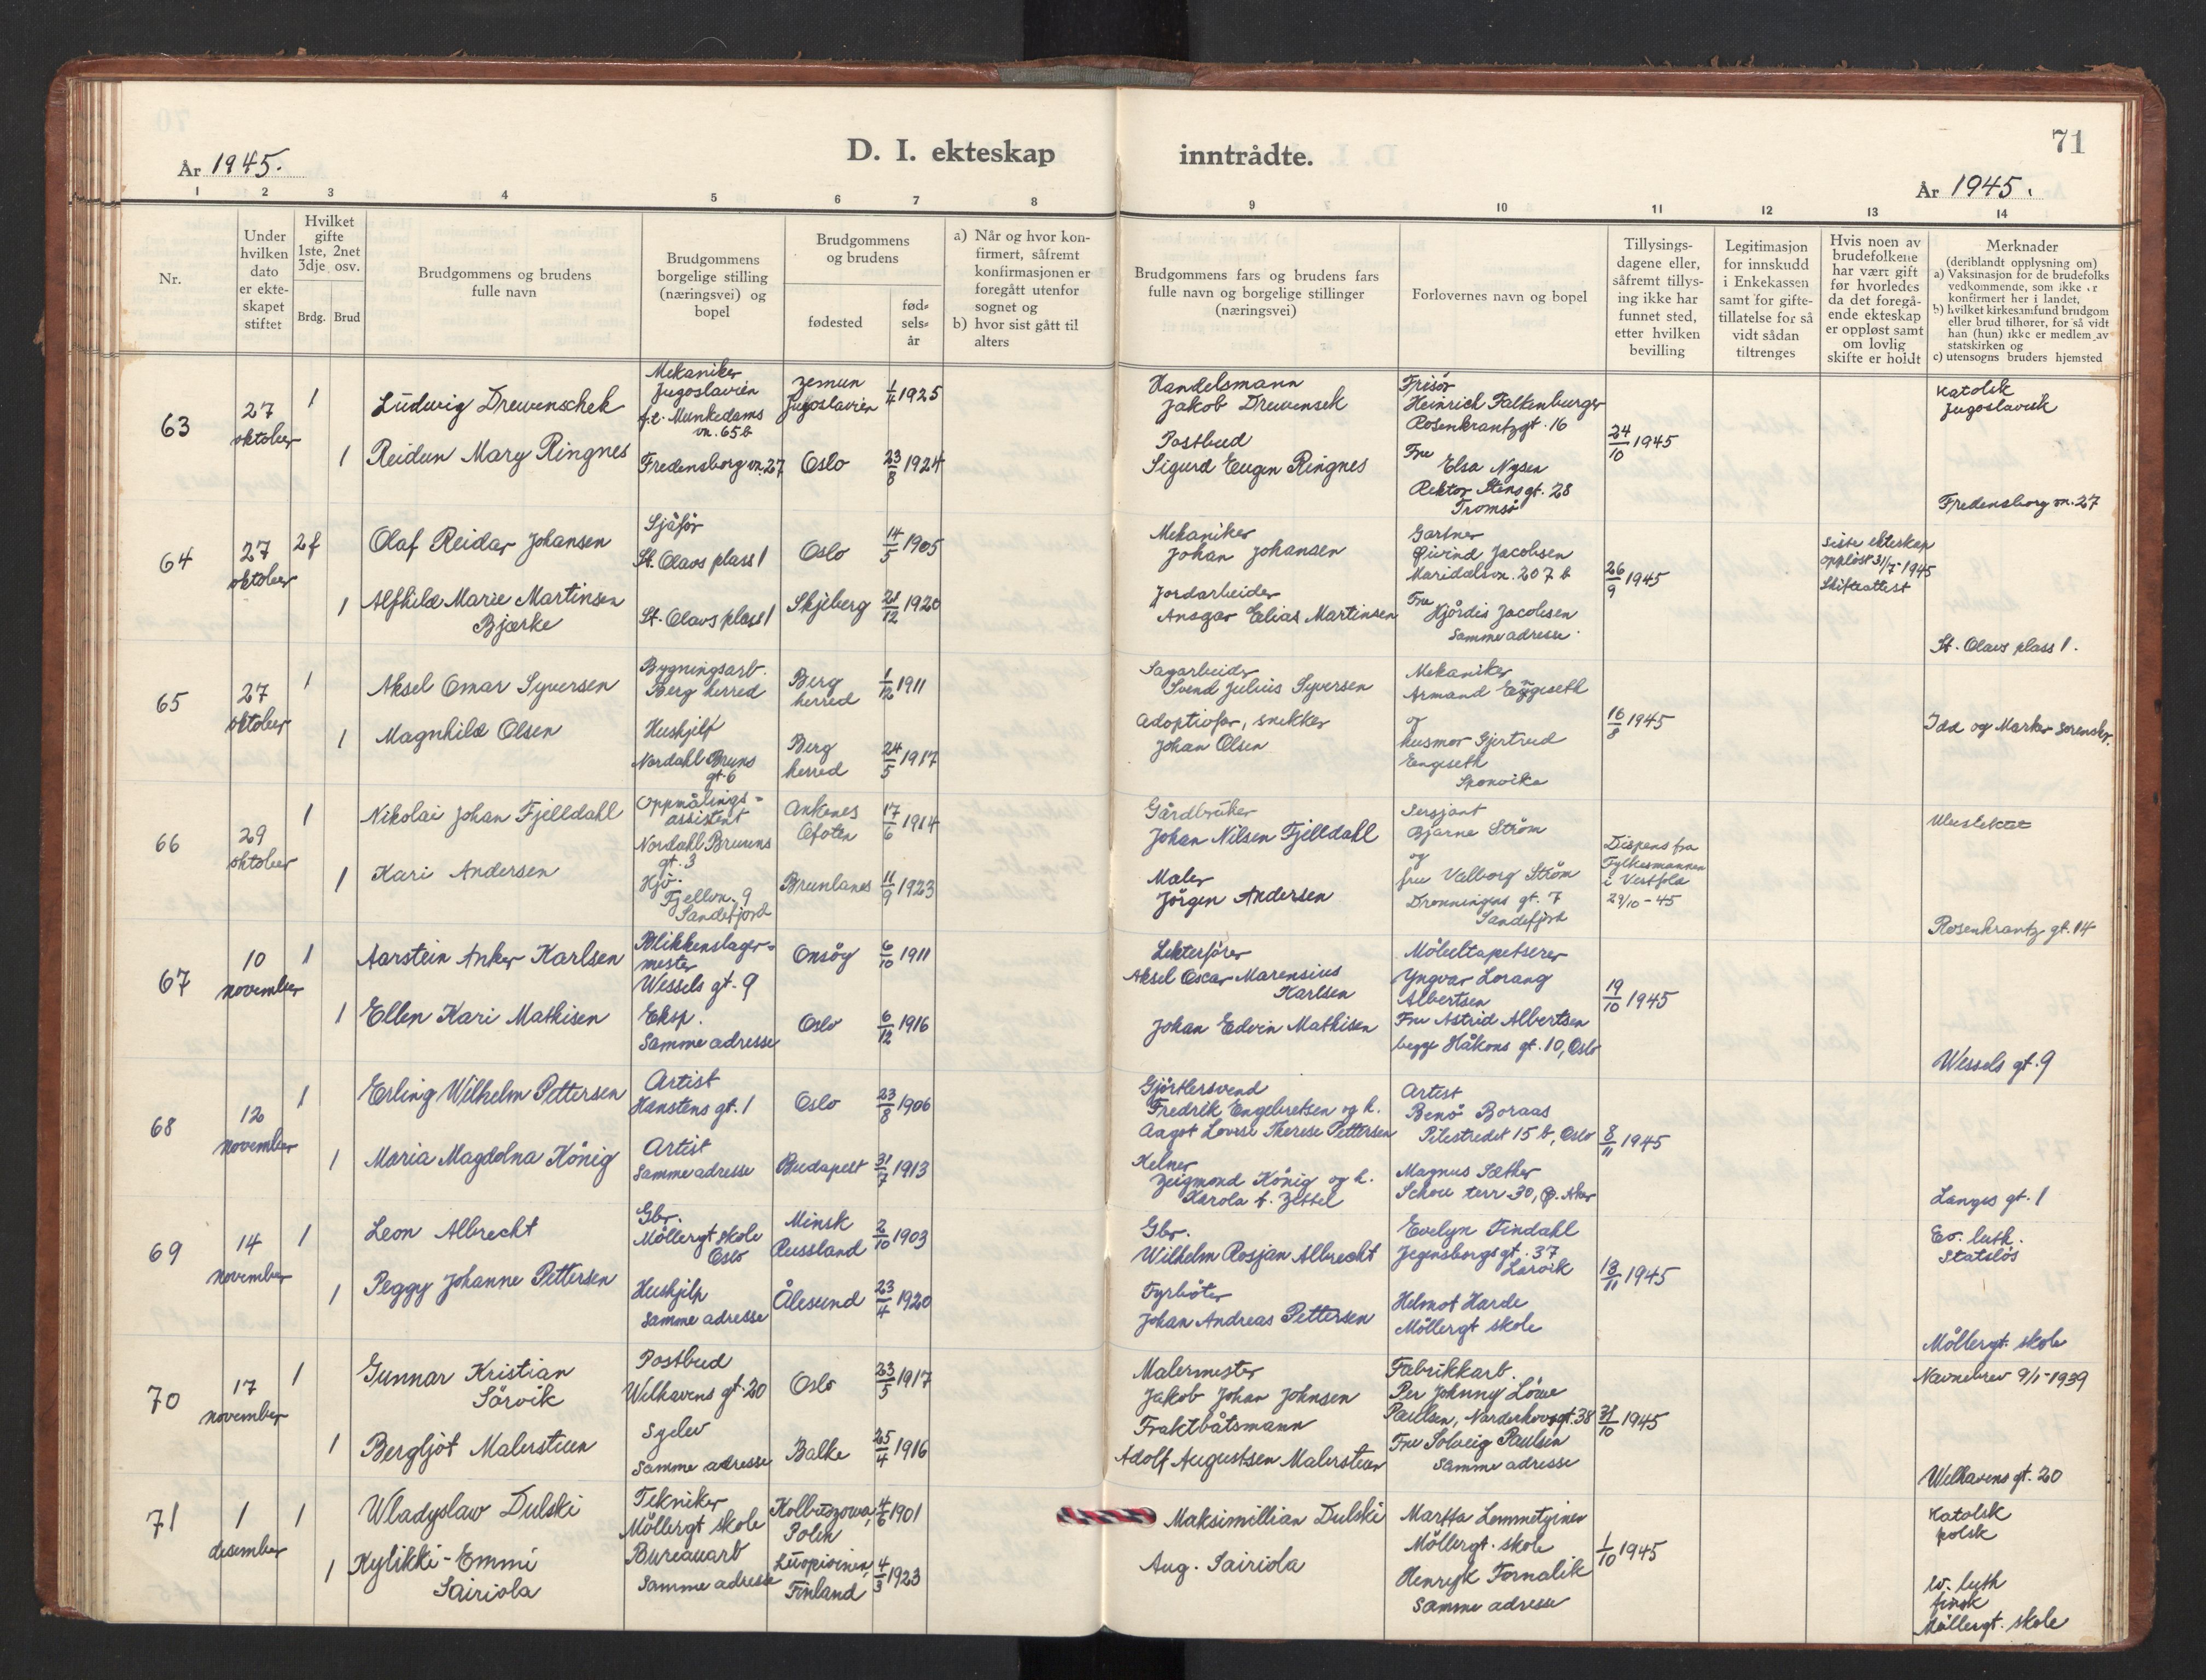 D. I. ekteskap
inntrådte.
71
År 1945.
År 1945.
1 2 3 4 5 6 7 8 9 10 11 12 13 14
Nr.
Under
hvilken
dato
er ekte-
skapet
stiftet
Hvilket
gifte
1ste, 2net
3dje, osv.
Brdg. Brud
Brudgommens og brudens
fulle navn
Brudgommens
borgelige stilling
(næringsvei) og
bopel
Brudgommens
og brudens
fødested
fød-
sels-
år
a) Når og hvor kon-
firmert, såfremt
konfirmasjonen er
foregått utenfor
sognet og
b) hvor sist gått til
alters
Brudgommens fars og brudens fars
fulle navn og borgelige stillinger
(næringsvei)
Forlovernes navn og bopel
Tillysings-
dagene eller,
såfremt tillys-
ing ikke har
funnet sted,
etter hvilken
bevilling
Legitimasjon
for innskudd
i Enkekassen
samt for gifte-
tillatelse for så
vidt sådan
tiltrenges
Hvis noen av
brudefolkene
har vært gift
før hvorledes
da det foregå-
ende ekteskap
er oppløst samt
om lovlig
skifte er holdt
Merknader
(deriblandt opplysning om)
a) Vaksinasjon for de brudefolks
vedkommende, som ikke er
konfirmert her i landet,
b) hvilket kirkesamfund brudgom
eller brud tilhører, for så vidt
han (hun) ikke er medlem av
statskirken og
c) utensogns bruders hjemsted
63
27
oktober
1
Ludwig Drewenschek
Mekaniker
Jugoslavien
f.t. Munkedams
vn. 65 b
Zemun
Jugoslavien
1/4 1925
Handelsmann
Jakob Drewensek
Frisør
Heinrich Falkenburger
Rosenkrantzgt. 16
24/10 1945
Katolsk
Jugoslavisk
1
Reidun Mary Ringnes
Fredensborg vn. 27
Oslo
23/8 1924
Postbud
Sigurd Eugen Ringnes
Fru
Elsa Nysen
Rektor Stens gt. 28
Tromsø
Fredensborg vn. 27
64
27
oktober
2 f
Olaf Reidar Johansen
Sjåfør
St. Olavs plass 1
Oslo
14/5 1905
Mekaniker
Johan Johansen
Gartner
Øivind Jacobsen
Maridalsvn. 207 b
26/9 1945
siste ekteskap
oppløst 31/7-1945
Skifteattest
1
Alfhild Marie Martinsen
Bjærke
St. Olavs plass 1
Skjeberg
21/12 1920
Jordarbeider
Ansgar Elias Martinsen
Fru
Hjørdis Jacobsen
Samme adresse.
St. Olavs plass 1.
65
27
oktober
1
Aksel Omar Syversen
Bygningsarb.
Berg herred
Berg
herred
1/12 1911
Sagarbeider
Svend Julius Syversen
Mekaniker
Armand Engeseth
16/8 1945
Idd og Marker sorenskr.
1
Magnhild Olsen
Hushjelp
Nordahl Bruns
gt. 6
Berg
herred
24/5 1917
Adoptivfar, snekker
Johan Olsen
og
husmor Gjertrud
Engeseth
Sponvika
66
29
oktober
1
Nikolai Johan Fjelldahl
Oppmålings-
assistent
Nordahl Bruuns
gt. 3
Ankenes
Ofoten
17/6 1914
Gårdbruker
Johan Nilsen Fjelldahl
Sersjant
Bjarne Strøm
og
fru Valborg Strøm
Dronningens gt. 7
Sandefjord
Dispens fra
Fylkesmannen
i Vestfold
29/10-45
1
Kari Andersen
Hjv.
Fjellvn. 9
Sandefjord
Brunlanes
11/9 1923
Maler
Jørgen Andersen
Rosenkrantz gt. 14
67
10
november
1
Aarstein Anker Karlsen
Blikkenslager-
mester
Wessels gt. 9
Onsøy
6/10 1911
Lekterfører
Aksel Oscar Marensius
Karlsen
Møbeltapetserer
Yngvar Lorang
Albertsen
Fru Astrid Albertsen
begge Håkons gt. 10, Oslo
19/10 1945
1
Ellen Kari Mathisen
Eksp.
Samme adresse
Oslo
6/12 1916
Johan Edvin Mathisen
Wessels gt. 9
68
12
november
1
Erling Wilhelm Pettersen
Artist
Hanstens gt. 1
Oslo
23/8 1906
Gjørtlersvend
Fredrik Engebretsen og h.
Aagot Lovise Therese Pettersen
Artist
Benö Boraas
Pilestredet 15 b, Oslo
8/11 1945
1
Maria Magdolna König
Artist
Samme adresse
Budapest
31/7 1913
Kelner
Zsigmond König og h.
Karola f. Zettel
Magnus Sæther
Schou terr. 30, Ø. Aker
Langes gt. 1
69
14
november
1
Leon Albrecht
Gbr.
Møllergt skole
Oslo
Minsk
Russland
2/10 1903
Gbr.
Wilhelm Rosjan Albrecht
Evelyn Tindahl
Jegersborgsgt. 37
Larvik
13/11 1945
Ev. luth.
Statsløs
1
Peggy Johanne Pettersen
Hushjelp
Samme adresse
Ålesund
23/4 1920
Fyrbøter
Johan Andreas Pettersen
Helmot Harde
Møllergt skole
Møllergt. skole
70
17
november
1
Gunnar Kristian
Sørvik
Postbud
Welhavens gt. 20
Oslo
23/5 1917
Malermester
Jakob Johan Johnsen
Fabrikkarb.
Per Johnny Löwe
Paulsen, Norderhovsgt. 38
31/10 1945
Navnebrev 9/1-1939
1
Bergljot Malerstuen
Syelev
Samme adresse
Balke
25/4 1916
Fraktbåtsmann
Adolf Augustsen Malerstuen
Fru Solveig Paulsen
Samme adresse
Welhavens gt. 20
71
1
desember
1
Wladyslaw Dulski
Tekniker
Møllergt skole
Kolbuszowa,
Polen
4/6 1901
Maksimillian Dulski
Martta Lemmetyinen
Møllergt. skole
1/10 1945
Katolsk
polsk
1
Kylikki-Emmi
Sairiola
Bureauarb
Samme adresse
Luopioinen,
Finland
4/3 1923
Aug. Sairiola
Henryk Fornalik
Samme adresse
Ev. luth
finsk
Møllergt. skole